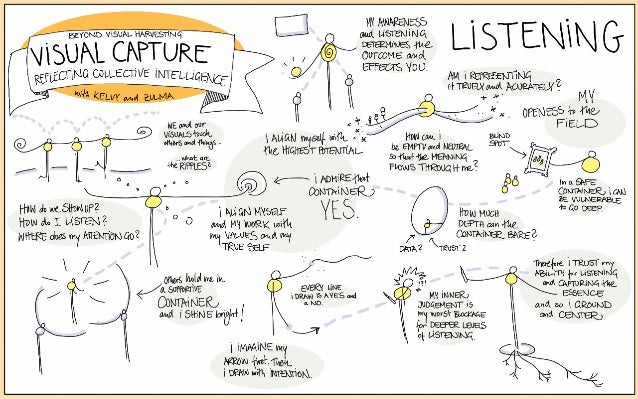 BEYOND VISUAL HARVESTING
VISUAL CAPTURE
REFLECTING COLLECTIVE INTELLIGENCE
with KELVY and ZULMA
LISTENING
MY AWARENESS
and LISTENING
DETERMINES the
OUTCOME and
EFFECTS YOU.
AM i REPRESENTING
iT TRUELY and ACURATELY?
MY
OPENESS to the
FIELD
WE and our
VISUALS touch
others and things...
...what are
the RIPPLES?
i ALIGN myself with
the HIGHEST POTENTIAL
HOW can i
be EMPTY and NEUTRAL
so that the MEANING
FLOWS THROUGH me?
BLIND
SPOT
In a SAFE
CONTAINER i CAN
BE VULNERABLE
to GO DEEP.
i ADMIRE that
CONTAINER
YES.
HOW do we SHOW UP?
HOW do I LISTEN?
WHERE does my ATTENTION GO?
i ALIGN MYSELF
and MY WORK with
my VALUES and my
TRUE SELF
HOW MUCH
DEPTH can the
CONTAINER BARE?
DATA?
TRUST?
Others hold me in
a SUPPORTIVE
CONTAINER
and i SHINE bright!
EVERY LINE
i DRAW iS A YES and
a NO.
i IMAGINE my
ARROW first. Then
i DRAW with INTENTION.
MY INNER
JUDGEMENT is
my worst BLOCKAGE
for DEEPER LEVELS
of LISTENING.
Therefore i TRUST my
ABILITY for LISTENING
and CAPTURING the
ESSENCE
and so i GROUND
and CENTER.